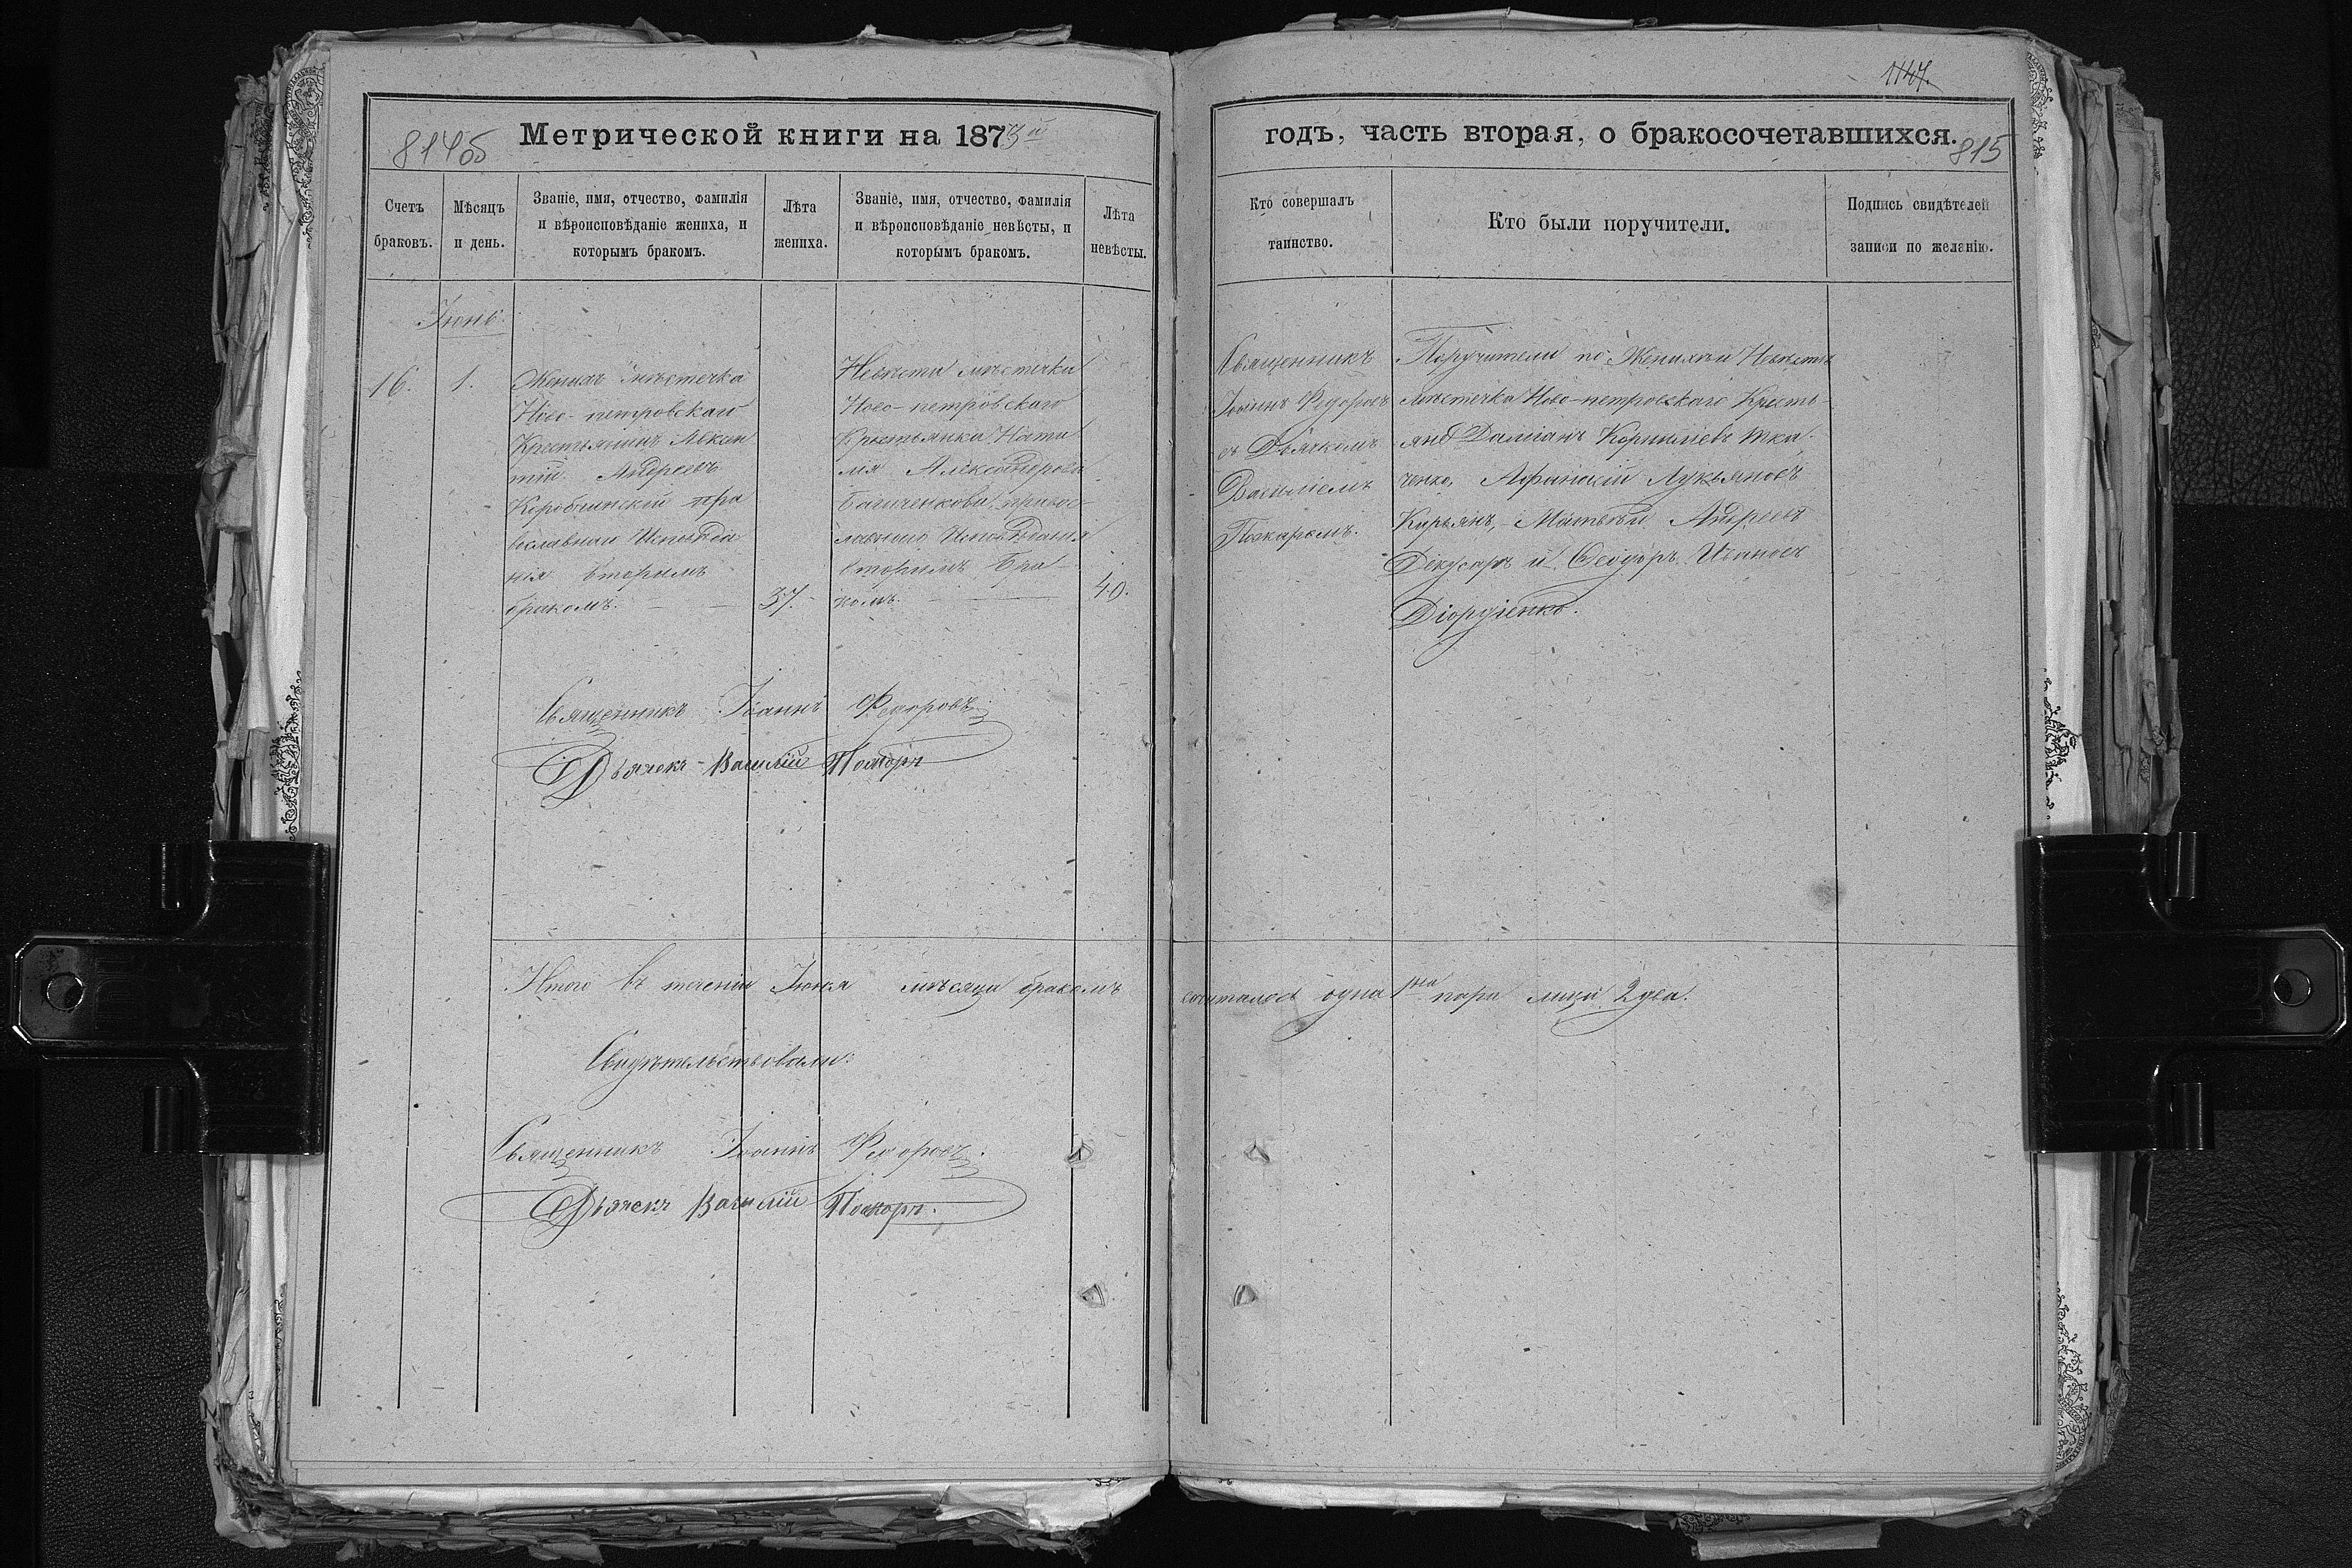 1147.
814об
Метрической книги на 1873й
годъ, часть вторая, о бракосочетавшихся.
815
Счетъ браковъ.
Мѣсяцъ и день.
Званіе, имя, отчество, фамилія
и вѣроисповѣданіе жениха, и
которымъ бракомъ.
Лѣта жениха.
Званіе, имя, отчество, фамилія
и вѣроисповѣданіе невѣсты, и
которымъ бракомъ.
Лѣта невѣсты.
Кто совершалъ
таинство.
Кто были поручители.
Подпись свидѣтелей
записи по желанію.
Іюнь.
16.
1.
Женихъ мѣстечка
Ново-петровскаго
Крестьянинъ Авксен
тій Андреевъ
православнаго Исповѣда
нія вторымъ
бракомъ.
37.
Невѣста мѣстечка
Ново-петровскаго
Крестьянка Ната
лія Александрова
правос
лавнаго Исповѣданія
вторымъ Бра
комъ.
40.
Священникъ
Іоаннъ Федоровъ
съ Дьячкомъ
Василіемъ
Поручители по Женихѣ и Невѣстѣ
мѣстечка Ново-петровскаго Кресть-
яне Даміанъ Корниліевъ Тка-
ченко, Афанасій Лукьяновъ
Курьянъ, Матвѣй Андреевъ
Дікусаръ и Ѳеодоръ Ивановъ
Діордіенко.
Священникъ Іоаннъ Федоровъ
Дьячекъ Василій
Итого въ теченіи Іюня мѣсяца бракомъ
сочеталось одна 1на пара лицъ 2 два.
Свидѣтельствовали:
Священникъ Іоаннъ Федоровъ.
Дьячекъ Василій